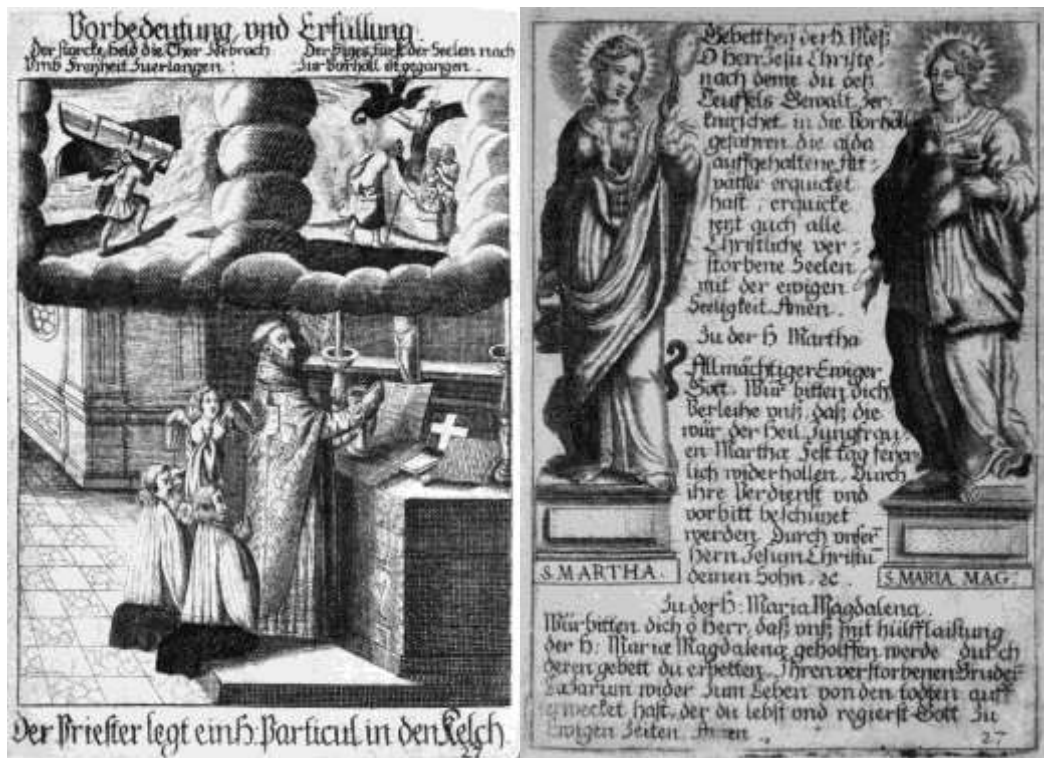 Vorbedeutung vnd Erfüllung.
Der starcke held die Thor Zerbrach
Vmb Freyheit Zuerlangen :
Der Siges fürst der Seelen nach
Zur Vorholl ist gegangen .
Der Priester legt ein H. Particul in den Kelch
27
Gebett bey der H. Meß
O Herr Jesu Christe
nach deme du deß
Teuffels Gewalt Zer-
knirschet, in die Vorholl
gefahren, die alda
auffgehaltene Alt-
vätter erquicket
hast, erquicke
jezt auch alle
Christliche ver-
storbene Seelen
mit der ewigen
Seeligkeit. Amen .
Zu der H Martha
Allmächtiger Ewiger
Gott, Wür bitten dich
Verleihe vnß, daß die
wür der Heil. Jungfrau-
en Martha Fest tag feyer-
lich widerhollen, Durch
ihre Verdienst vnd
vorbitt beschüzet
werden. Durch vnsern
Hern Jesum Christū
deinen Sohn. ꝛc.
S. MARTHA.
S. MARIA MAG.
Zu der H: Maria Magdalena .
Wür bitten dich ô Herr, daß vnß mit hülfflaistung
der H: Maria Magdalena geholffen werde durch
deren gebett du erbetten, Ihren verstorbenen Bruder
Lazarum wider Zum Leben von den todten auff
erwecket hast, der du lebst vnd regierst Gott Zu
Ewigen Zeiten Amen .
27